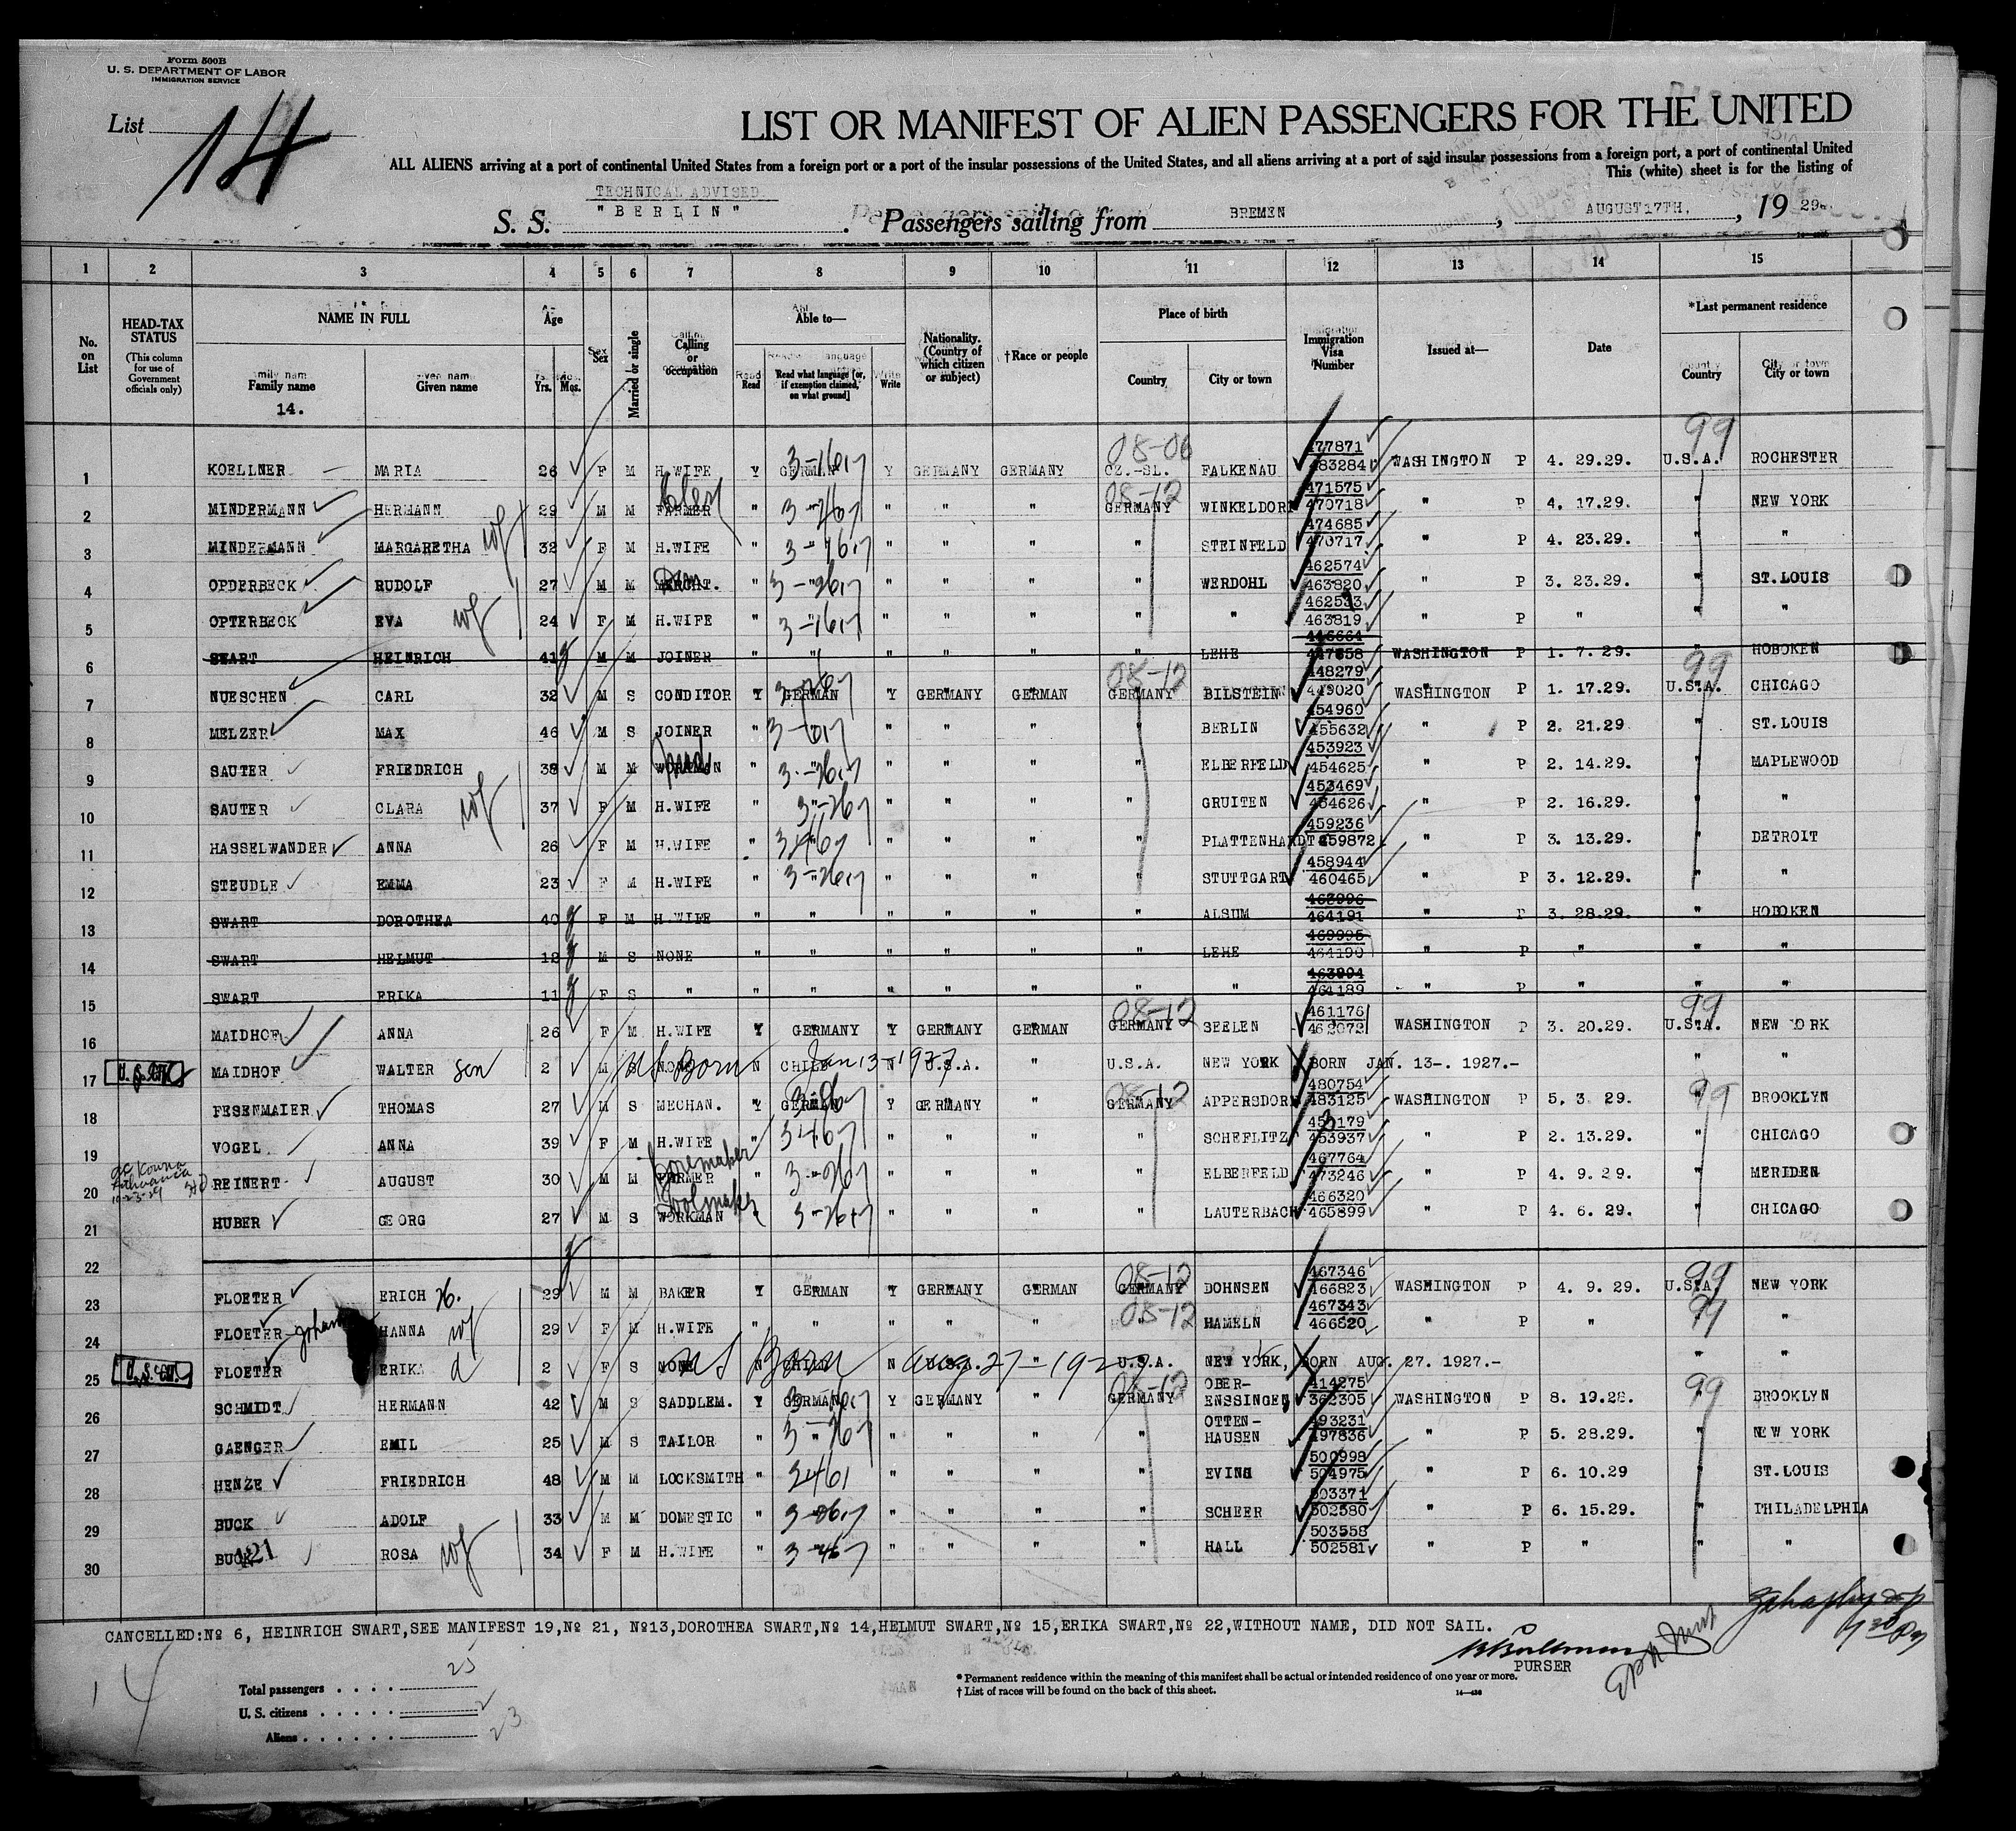 Form 500B
U. S. DEPARTMENT OF LABOR
IMMIGRATION SERVICE
List 14
LIST OR MANIFEST OF ALIEN PASSENGERS FOR THE UNITED
ALL ALIENS arriving at a port of continental United States from a foreign port or a port of the insular possessions of the United States, and all aliens arriving at a port of said insular possessions from a foreign port, a port of continental United
This (white) sheet is for the listing of
TECHNICAL ADVISED.
S. S. "BERLIN" . Passengers sailing from BREMEN , AUGUST 17TH. , 19 29.
1 2 3 4 5 6 7 8 9 10 11 12 13 14 15
No. on List
HEAD-TAX STATUS
(This column for use of Government officials only)
NAME IN FULL
Family name
14.
Given name
Age
Yrs. Mos.
Sex
Married or single
Calling or occupation
Able to—
Read
Read what language [or, if exemption claimed, on what ground]
Write
Nationality. (Country of which citizen or subject)
†Race or people
Place of birth
Country
City or town
Immigration Visa Number
Issued at—
Date
*Last permanent residence
Country
City or town
1 KOELLNER MARIA 26 F M H.WIFE Y GERMAN Y GERMANY GERMANY 08-06 CZ.-SL. FALKENAU 477871 483284 WASHINGTON P 4. 29.29. 99 U.S.A. ROCHESTER
2 MINDERMANN HERMANN 29 M M FARMER " " " " " 08-12 GERMANY WINKELDORF 471575 470718 " P 4. 17.29. " NEW YORK
3 MINDERMANN MARGARETHA wf 32 F M H.WIFE " " " " " " STEINFELD 474685 470717 " P 4. 23.29. " "
4 OPDERBECK RUDOLF 27 M M MERCHT. " " " " " " WERDOHL 462574 463820 " P 3. 23.29. " ST.LOUIS
5 OPTERBECK EVA wf 24 F M H.WIFE " " " " " " " 462533 463819 " P " " "
6 SWART HEINRICH 41 M M JOINER " " " " " " LEHE 446664 WASHINGTON P 1. 7. 29. " HOBOKEN
7 NUESCHEN CARL 32 M S CONDITOR Y GERMAN Y GERMANY GERMAN 08-12 GERMANY BILSTEIN 448279 449020 WASHINGTON P 1. 17.29. 99 U.S.A. CHICAGO
8 MELZER MAX 46 M S JOINER " " " " " " BERLIN 454960 455632 " P 2. 21.29 " ST.LOUIS
9 SAUTER FRIEDRICH 38 M M WORKMAN " " " " " " ELBERFELD 453923 454625 " P 2. 14.29. " MAPLEWOOD
10 SAUTER CLARA wf 37 F M H.WIFE " " " " " " GRUITEN 453469 454626 " P 2. 16.29. " "
11 HASSELWANDER ANNA 26 F M H.WIFE " " " " " " PLATTENHARDT 459236 459872 " P 3. 13.29. " DETROIT
12 STEUDLE EMMA 23 F M H.WIFE " " " " " " STUTTGART 458944 460465 " P 3. 12.29. " "
13 SWART DOROTHEA 40 F M H.WIFE " " " " " " ALSUM 463996 464191 " P 3. 28.29. " HOBOKEN
14 SWART HELMUT 12 M S NONE " " " " " " LEHE 469995 464190 " P " " "
15 SWART ERIKA 11 F S " " " " " " " " 463994 464189 " P " " "
16 MAIDHOF ANNA 26 F M H.WIFE Y GERMANY Y GERMANY GERMAN 08-12 GERMANY SEELEN 461176 462072 WASHINGTON P 3. 20.29. 99 U.S.A. NEW YORK
17 MAIDHOF WALTER son 2 M S NONE US Born N CHILD Jan 13-1927 N U.S.A. " U.S.A. NEW YORK BORN JAN. 13-. 1927.- " "
18 FESENMAIER THOMAS 27 M S MECHAN. Y GERMAN Y GERMANY " 08-12 GERMANY APPERSDORF 480754 483125 WASHINGTON P 5. 3. 29. 99 BROOKLYN
19 VOGEL ANNA 39 F M H.WIFE " " " " " " SCHEFLITZ 453179 453937 " P 2. 13.29. " CHICAGO
20 REINERT AUGUST 30 M M FARMER " " " " " " ELBERFELD 467764 473246 " P 4. 9. 29. " MERIDEN
21 HUBER GEORG 27 M S WORKMAN Toolmaker " " " " " " LAUTERBACH 466320 465899 " P 4. 6. 29. " CHICAGO
22
23 FLOETER ERICH 29 M M BAKER Y GERMAN Y GERMANY GERMAN 08-12 GERMANY DOHNSEN 467346 466823 WASHINGTON P 4. 9. 29. 99 U.S.A. NEW YORK
24 FLOETER HANNA wf 29 F M H.WIFE " " " " " 08-12 " HAMELN 467343 466820 " P " 99 "
25 FLOETER ERIKA d 2 F S NONE US Born N CHILD N U.S.A. Aug. 27-1927 U.S.A. NEW YORK, BORN AUG. 27. 1927.- " "
26 SCHMIDT HERMANN 42 M S SADDLEM. Y GERMAN Y GERMANY " 08-12 GERMANY OBER-ENSSINGEN 414275 362305 WASHINGTON P 8. 19.28. 99 BROOKLYN
27 GAENGER EMIL 25 M S TAILOR " " " " " " OTTEN-HAUSEN 493231 497836 " P 5. 28.29. " NEW YORK
28 HENZE FRIEDRICH 48 M M LOCKSMITH " " " " " EVING 500998 504975 " P 6. 10.29 " ST.LOUIS
29 BUCK ADOLF 33 M M DOMESTIC " " " " " SCHEER 503371 502580 " P 6. 15.29. " PHILADELPHIA
30 BUCK 121 ROSA wf 34 F M H.WIFE " " " " " " HALL 503558 502581 " P " " "
CANCELLED:No 6, HEINRICH SWART,SEE MANIFEST 19,No 21, No13,DOROTHEA SWART,No 14,HELMUT SWART,No 15,ERIKA SWART,No 22,WITHOUT NAME, DID NOT SAIL.
PURSER
14
Total passengers . . . . 25
U. S. citizens . . . . . 2
Aliens . . . . . . 23
* Permanent residence within the meaning of this manifest shall be actual or intended residence of one year or more.
† List of races will be found on the back of this sheet.